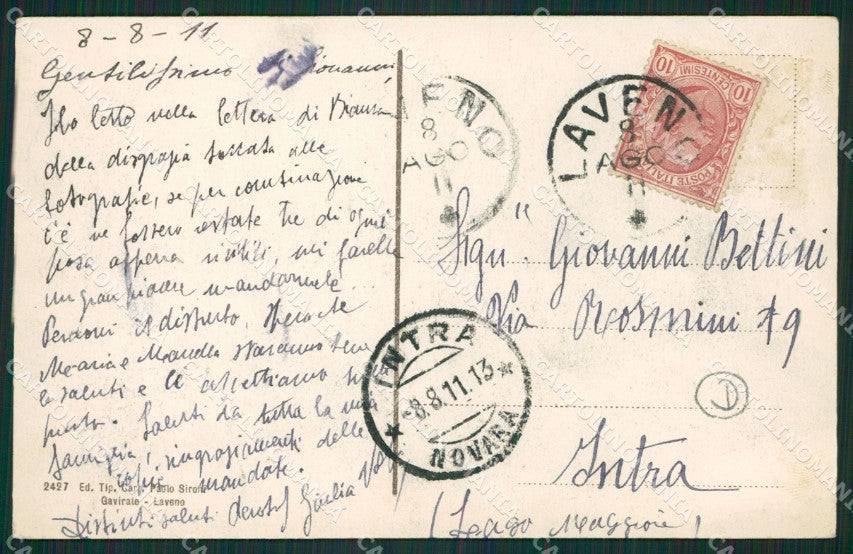 8-8-11
Gentilissimo Giovanni,
Ho letto nella lettera di Bianca
della disgrazia toccata alle
fotografie, se per combinazione
ce ne fossero restate tre di ogni
posa appena visibili, mi farebbe
un gran piacere mandarmele...
Perdoni il disturbo, spero che
Maria e
e la aspettiamo
Saluti da tutta la mia
famiglia, ringraziamenti delle
copie mandate.
Distinti saluti Giulia
2427 Ed. Tip. Cart. Paolo Sironi
Gavirate - Laveno
LAVENO
8
AGO
11
LAVENO
8
AGO
11
POSTE ITALIANE
10
CENTESIMI
10
Sign. Giovanni Bettini
Via Rosmini 49
INTRA
-8.8.11.13
NOVARA
Intra
(Lago Maggiore)
CARTOLINOMANIA